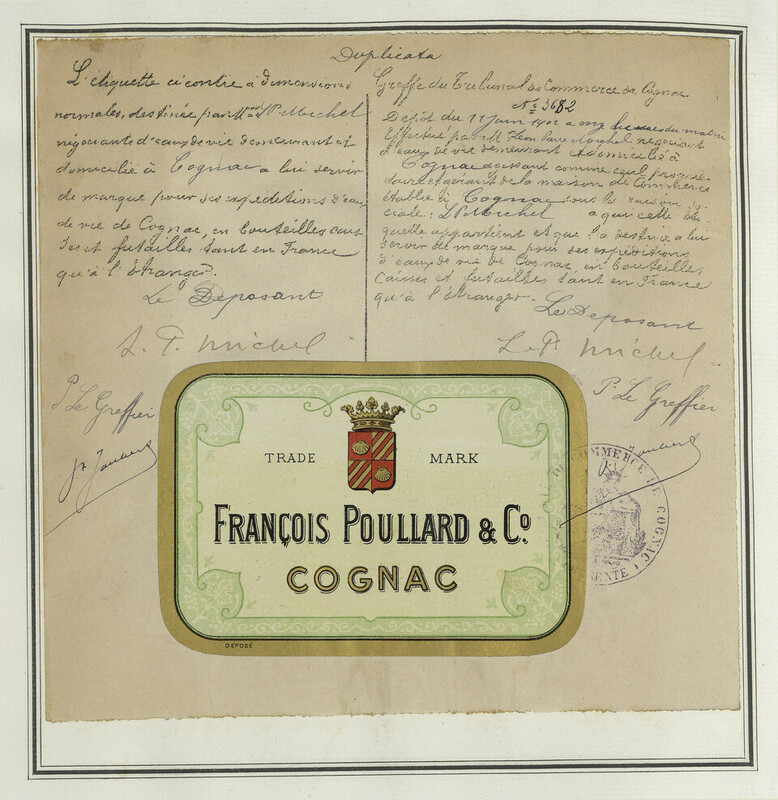 Duplicata
L'étiquette ci contre à dimensions
normales, destinée par L P Michel
négociants d'eaux de vie demeurant et
domicilié à Cognac a lui servir
de marque pour ses expéditions d'eaux
de vie de Cognac, en bouteilles cais
ses et futailles tant en France
qu'à l'Étranger.
Le Deposant
L. P. Michel
P Le Greffier
Greffe du Tribunal de Commerce de Cognac
N° 3682
Dépôt du 11 Juin 1902 a heures du matin
Effectué par M Michel négociant
d'eaux de vie demeurant et domicilié à
Cognac agissant comme seul proprié
taire et gérant de la maison de Commerce
établie à Cognac sous la raison so
ciale: L P Michel a qui cette éti
quette appartient et que la destine a lui
servir de marque pour ses expéditions
d'eaux de vie de Cognac, en bouteilles,
Caisses et futailles tant en France
qu'à l'Étranger.
Le Deposant
L. P. Michel
P. Le Greffier
TRADE MARK
FRANÇOIS POULLARD & Cº
COGNAC
DÉPOSÉ
DE COMMERCE DE COGNAC